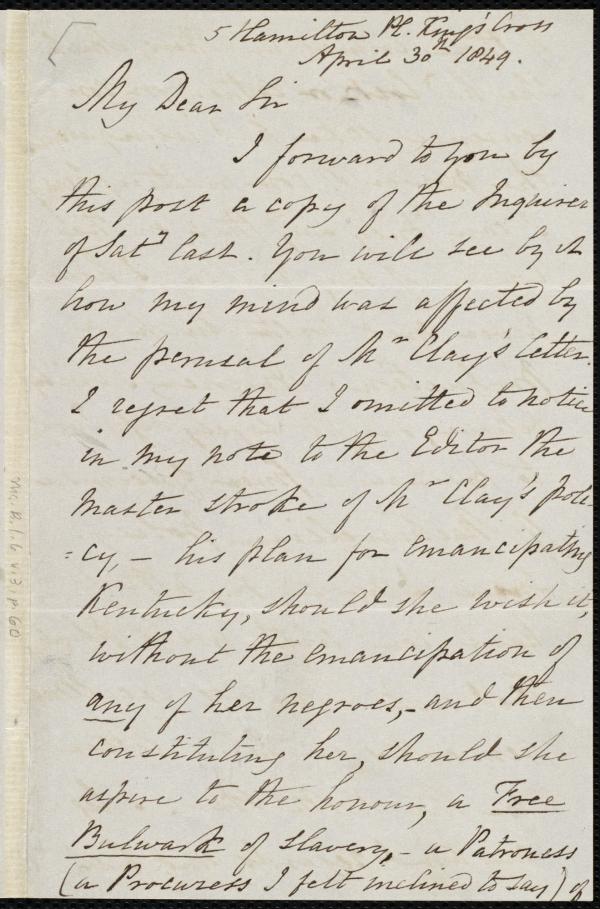 5 Hamilton Pl. King's Cross
April 30th 1849.
My Dear Sir
I forward to you by
this post a copy of the Inquirer
of Saty last. You will see by it
how my mind was affected by
the perusal of Mr Clay's letter.
I regret that I omitted to notice
in my note to the Editor the
master stroke of Mr Clay's poli-
=cy, – his plan for emancipating
Kentucky, should she wish it,
without the emancipation of
any of her negroes, – and then
constituting her, should she
aspire to the honour, a Free
Bulwark of slavery, – a Patroness
(a Procuress I felt inclined to say) of
Ms. B. 1. 6 v. 3, p. 60